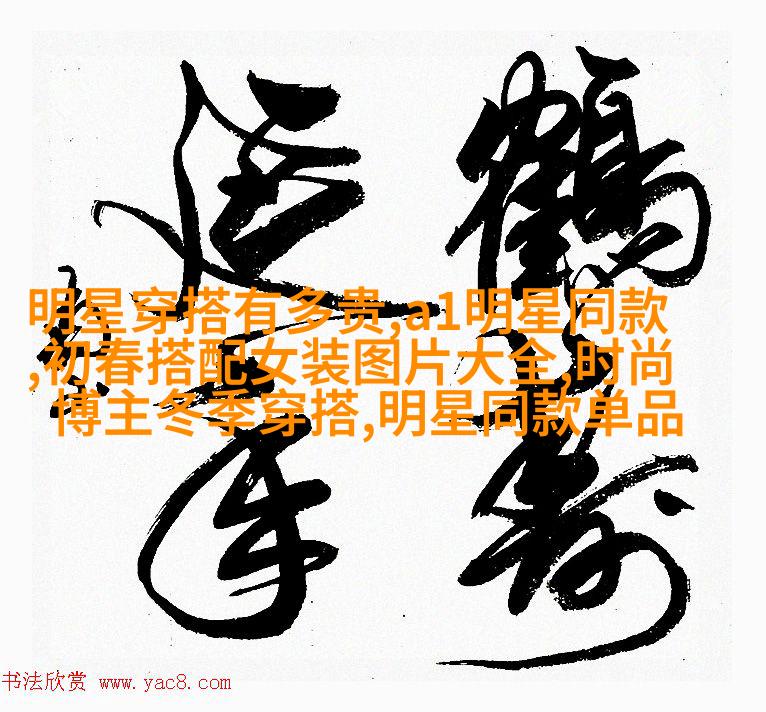 鶴壽
延年
明星穿搭有多贵,a1明星同款
,初春搭配女装图片大全,时尚
博主冬季穿搭,明星同款单品
书法欣赏 www.yac8.com